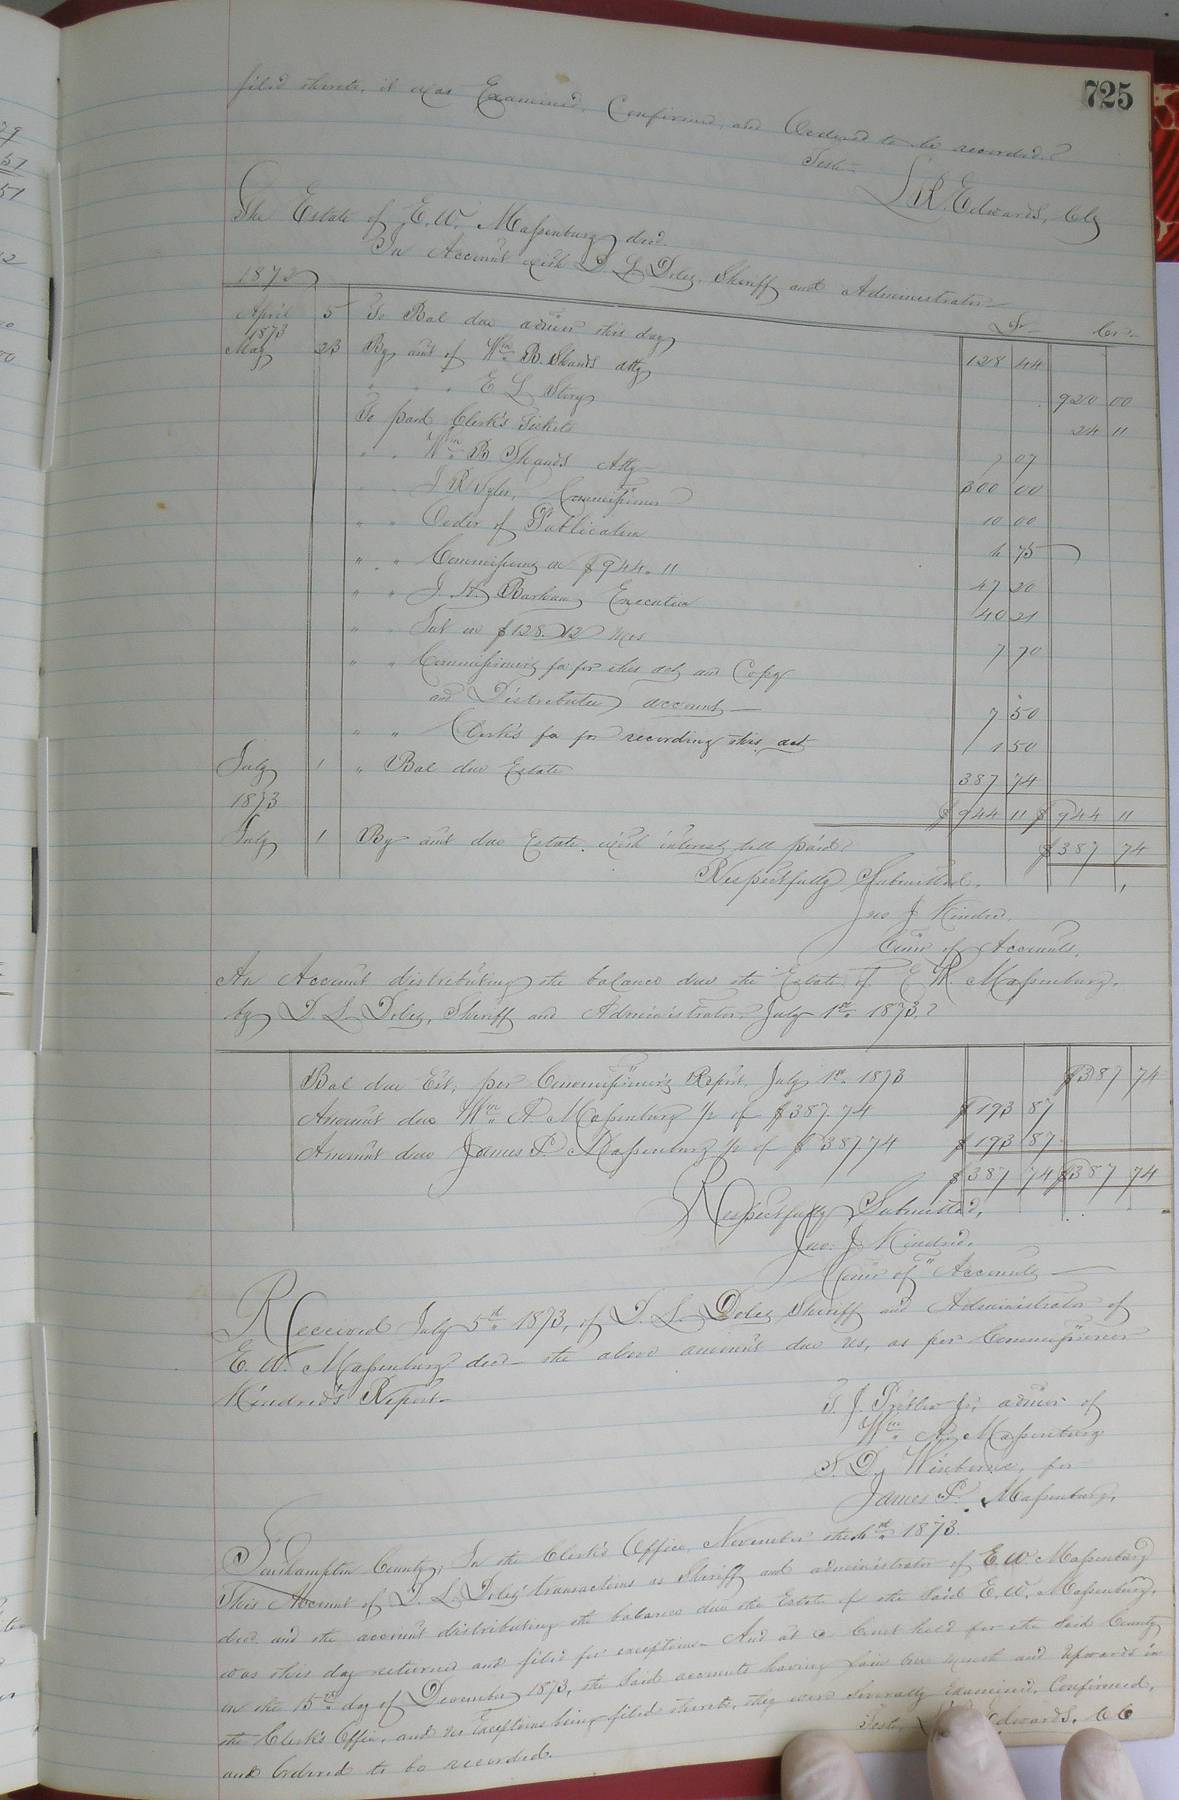 725
filed thereto, it was Examined, Confirmed, and Ordered to be recorded.
Teste
L R. Edwards, Clk
The Estate of E. W. Massenburg decd.
In Account with D. L. Doles, Sheriff and Administrator
1872 Dr. Cr.
April 5 To Bal due admor this day 128 44
1873
May 23 By amt of Wm B. Shands atty 920 00
" " " E L Story 24 11
To paid Clerk's Tickets 7 07
" " Wm B Shands Atty 300 00
" J R Commissioner 10 00
" " Order of Publication 6 75
" " Commissions on $944.11 47 20
" " J. H. Barham, Executor 40 21
" " Int on $128. 12 mos 7 70
" " Commissioner's fee for this act and Copy
and Distributee account 7 50
" " Clerk's fee for recording this act 1 50
July 1 " Bal due Estate 387 74
1873 $944 11 $944 11
July 1 By amt due Estate with interest till paid $387 74
Respectfully Submitted,
Jno J Kindred.
Comr of Accounts.
An Account distributing the balance due the Estate of E W. Massenburg,
by D. L. Doles, Sheriff and Administrator July 1st 1873.
Bal due Est, per Commissioner's Report, July 1st 1873 $387 74
Amount due Wm A Massenburg 1/2 of $387.74 $193 87
Amount due James P Massenburg 1/2 of $387.74 $193 87
$387 74 $387 74
Respectfully Submitted,
Jno. J. Kindred,
Comr of Accounts
Received July 5th 1873, of D. L. Doles Sheriff and Administrator of
E. W. Massenburg decd the above amount due us, as per Commissioner
Kindred's Report
T. J. Pretlow Jr, admor of
Wm A. Massenburg
S. D. Winborne, for
James P. Massenburg.
Southampton County, In the Clerk's Office, November the 4th 1873.
This Account of D. L. Doles' transactions as Sheriff and administrator of E. W Massenburg
decd. and the account distributing the balance due the Estate of the said E. W. Massenburg,
was this day returned and filed for exceptions. And at a Court held for the said County
on the 15th day of December 1873, the said accounts having lain one month and upwards in
the Clerk's Office, and no Exceptions being filed thereto, they were severally Examined, Confirmed,
and Ordered to be recorded.
Teste, Edwards, CC